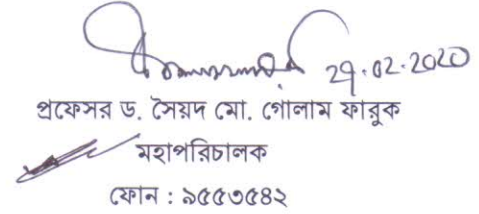 29.02.2020
প্রফেসর ড. সৈয়দ মো. গোলাম ফারুক
মহাপরিচালক
ফোন : ৯৫৫৩৫৪২